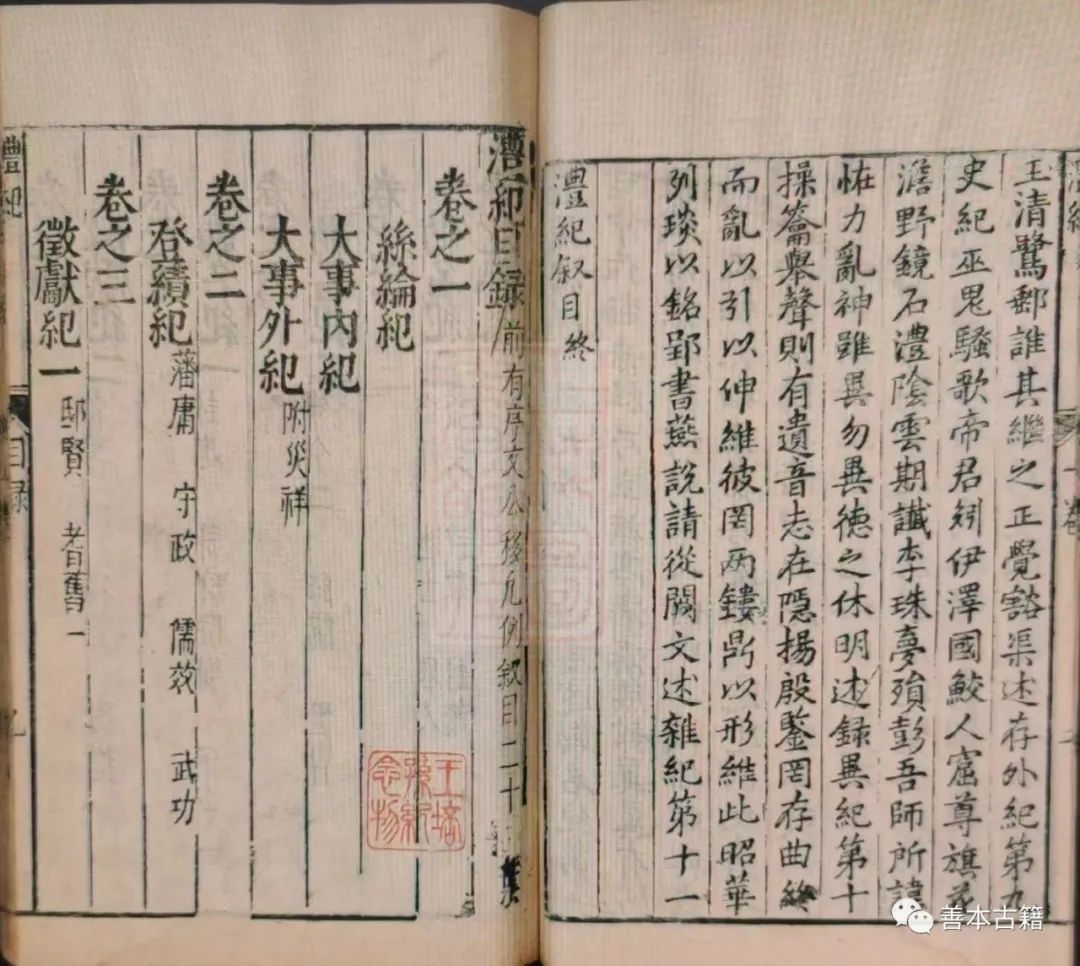 玉清鷺郵誰其継之正覺豁渠述存外紀第九
史紀巫鬼騷歌帝君剡伊澤國鮫人窟尊旗花
澹野鏡石澧陰雲期讖李珠夢殞彭吾師所諱
怪力亂神雖異勿異德之休明述録異紀第十
操籥舉聲則有遺音志在隱揚殷鑒罔存曲終
而亂以引以伸維彼罔兩鏤鼎以形維此昭華
列琰以銘郢書燕說請從闕文述雜紀第十一
澧紀叙目終
澧紀目録 前有序文公移凡例叙目二十
卷之一
絲綸紀
大事內紀
大事外紀 附災祥
卷之二
登績紀 藩庸 守政 儒效 武功
卷之三
徵獻紀一 邸賢 耆舊一
澧紀
目録
王培孫紀念物
善本古籍